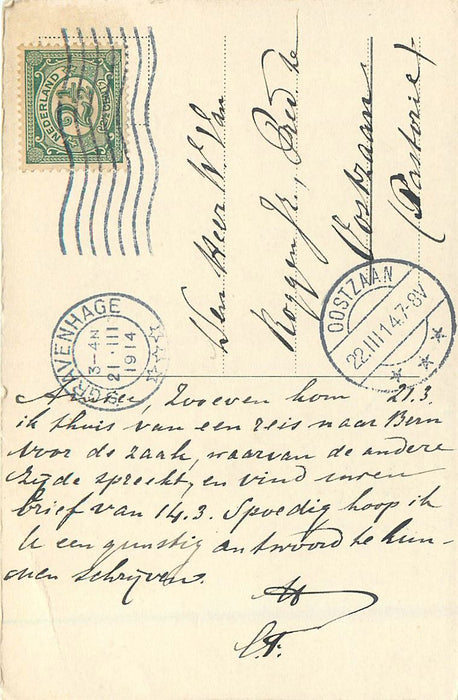 NEDERLAND
2½
CENT
Den Heer W. Van
Roggen Jr. Pred te
Oostzaan
(Pastorie)
'S GRAVENHAGE
3-4N
21·III
1914
OOSTZAAN
22.III.14.7-8V
Zooeven kom 21.3.
ik thuis van een reis naar Bern
voor de zaak, waarvan de andere
zijde spreekt, en vind uwen
brief van 14.3. Spoedig hoop ik
U een gunstig antwoord te kun-
nen schrijven.